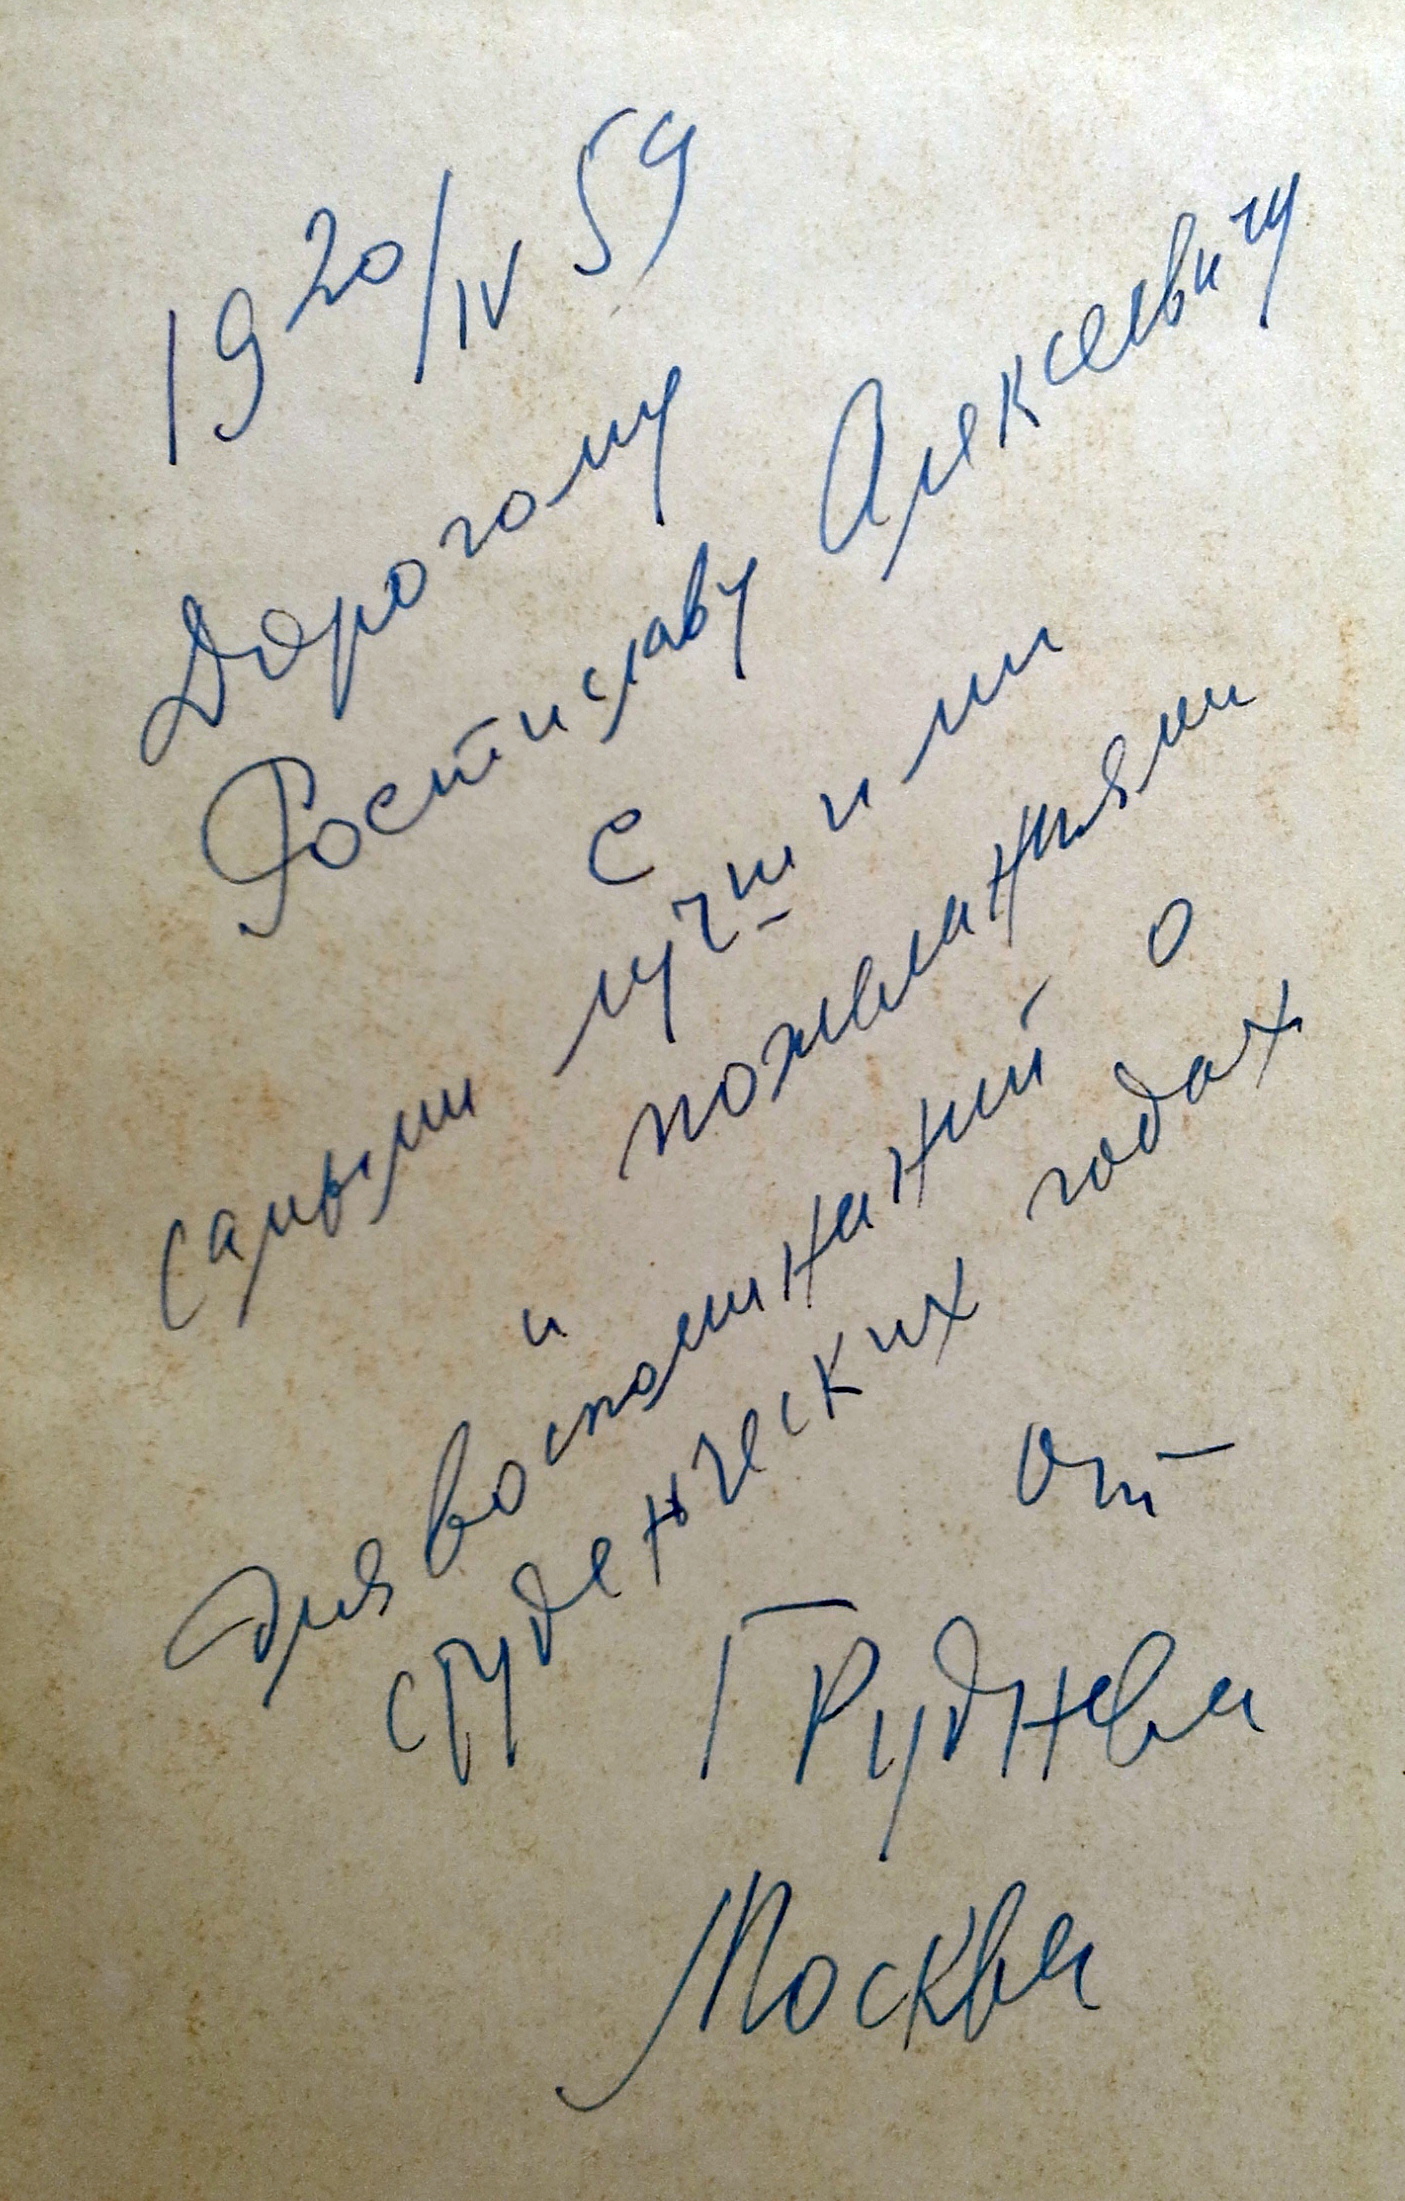 19 20/IV 59
Дорогому
Ростиславу Алексеевичу
с
самыми лучшими
пожеланиями
и
для воспоминаний о
студенческих годах
от
Груднева
Москва